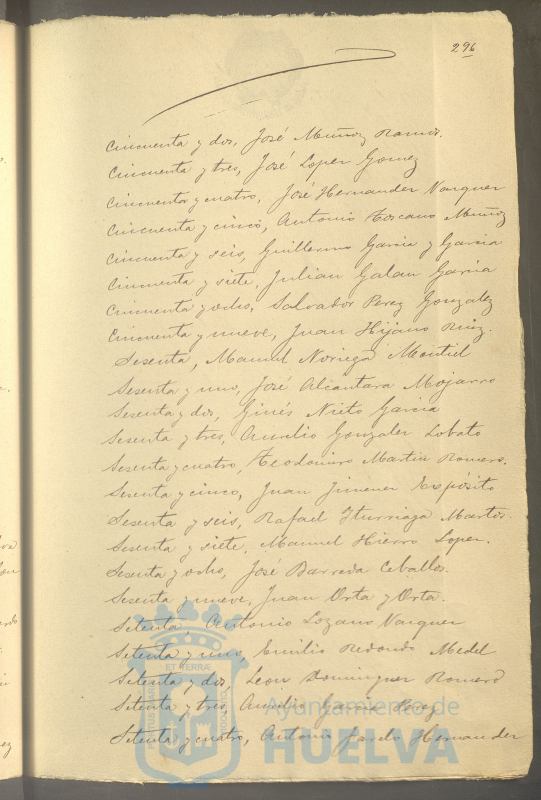 296
Cincuenta y dos, José Muñoz Ramos.
Cincuenta y tres, José Lopez Gomez
Cincuenta y cuatro, José Hernandez Vazquez
Cincuenta y cinco, Antonio Toscano Muñoz
Cincuenta y seis, Guillermo Garcia y Garcia
Cincuenta y siete, Julian Galan Garcia
Cincuenta y ocho, Salvador Perez Gonzalez
Cincuenta y nueve, Juan Hijano Ruiz.
Sesenta, Manuel Noriega Montiel
Sesenta y uno, José Alcántara Mojarro
Sesenta y dos, Ginés Nieto Garcia
Sesenta y tres, Aurelio Gonzalez Lobato
Sesenta y cuatro, Teodomiro Martin Romero.
Sesenta y cinco, Juan Jimenez Expósito
Sesenta y seis, Rafael Iturriaga Martos.
Sesenta y siete, Manuel Hierro Lopez.
Sesenta y ocho, José Barreda Ceballos.
Sesenta y nueve, Juan Orta y Orta.
Setenta, Antonio Lozano Vazquez
Setenta y uno, Emilio Redondo Medel
Setenta y dos, Leon Dominguez Romero
Setenta y tres, Aurelio Garcia Perez
Setenta y cuatro, Antonio Hernandez
ET TERRÆ
Ayuntamiento de
HUELVA